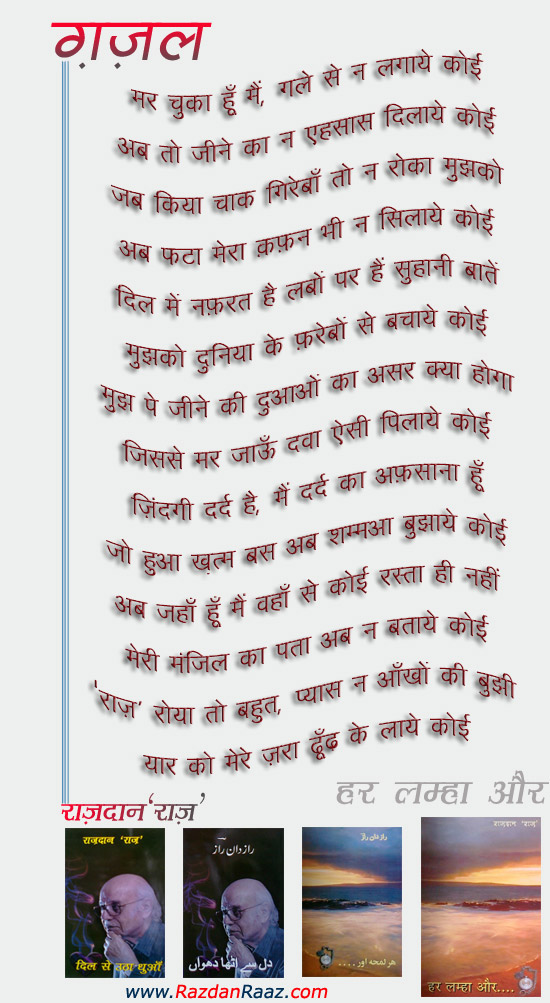 ग़ज़ल
मर चुका हूँ मैं, गले से न लगाये कोई
अब तो जीने का न एहसास दिलाये कोई
जब किया चाक गिरेबाँ तो न रोका मुझको
अब फटा मेरा क़फ़न भी न सिलाये कोई
दिल में नफ़रत है लबों पर हैं सुहानी बातें
मुझको दुनिया के फ़रेबों से बचाये कोई
मुझ पे जीने की दुआओं का असर क्या होगा
जिससे मर जाऊँ दवा ऐसी पिलाये कोई
ज़िंदगी दर्द है, मैं दर्द का अफ़साना हूँ
जो हुआ ख़त्म बस अब शम्मआ बुझाये कोई
अब जहाँ हूँ मैं वहाँ से कोई रस्ता ही नहीं
मेरी मंजिल का पता अब न बताये कोई
'राज़' रोया तो बहुत, प्यास न आँखों की बुझी
यार को मेरे ज़रा ढूँढ के लाये कोई
हर लम्हा और
राज़दान 'राज़'
राज़दान 'राज़'
दिल से उठा धुआँ
راز دان راز
دل سے اٹھا دھواں
راز دان راز
ہر لمحہ اور....
राज़दान 'राज़'
हर लम्हा और....
www.RazdanRaaz.com